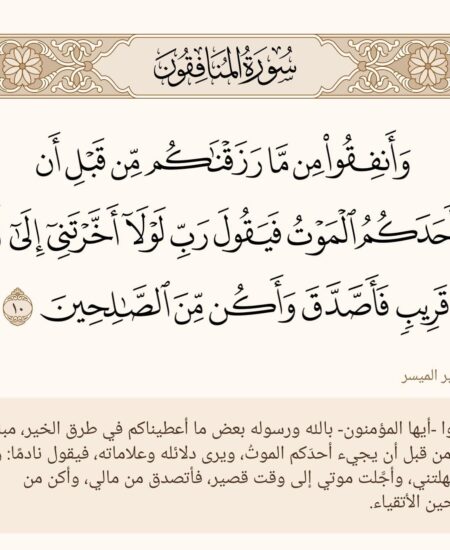 سُورَةُ المُنَافِقُونَ
وَأَنفِقُوا۟ مِن مَّا رَزَقْنَـٰكُم مِّن قَبْلِ أَن
أَحَدَكُمُ ٱلْمَوْتُ فَيَقُولَ رَبِّ لَوْلَآ أَخَّرْتَنِىٓ إِلَىٰٓ
قَرِيبٍ فَأَصَّدَّقَ وَأَكُن مِّنَ ٱلصَّـٰلِحِينَ ١٠
الميسر
أيها المؤمنون- بالله ورسوله بعض ما أعطيناكم في طرق الخير،
من قبل أن يجيء أحدَكم الموتُ، ويرى دلائله وعلاماته، فيقول نادمًا:
وأجَّلت موتي إلى وقت قصير، فأتصدق من مالي، وأكن من
الأتقياء.